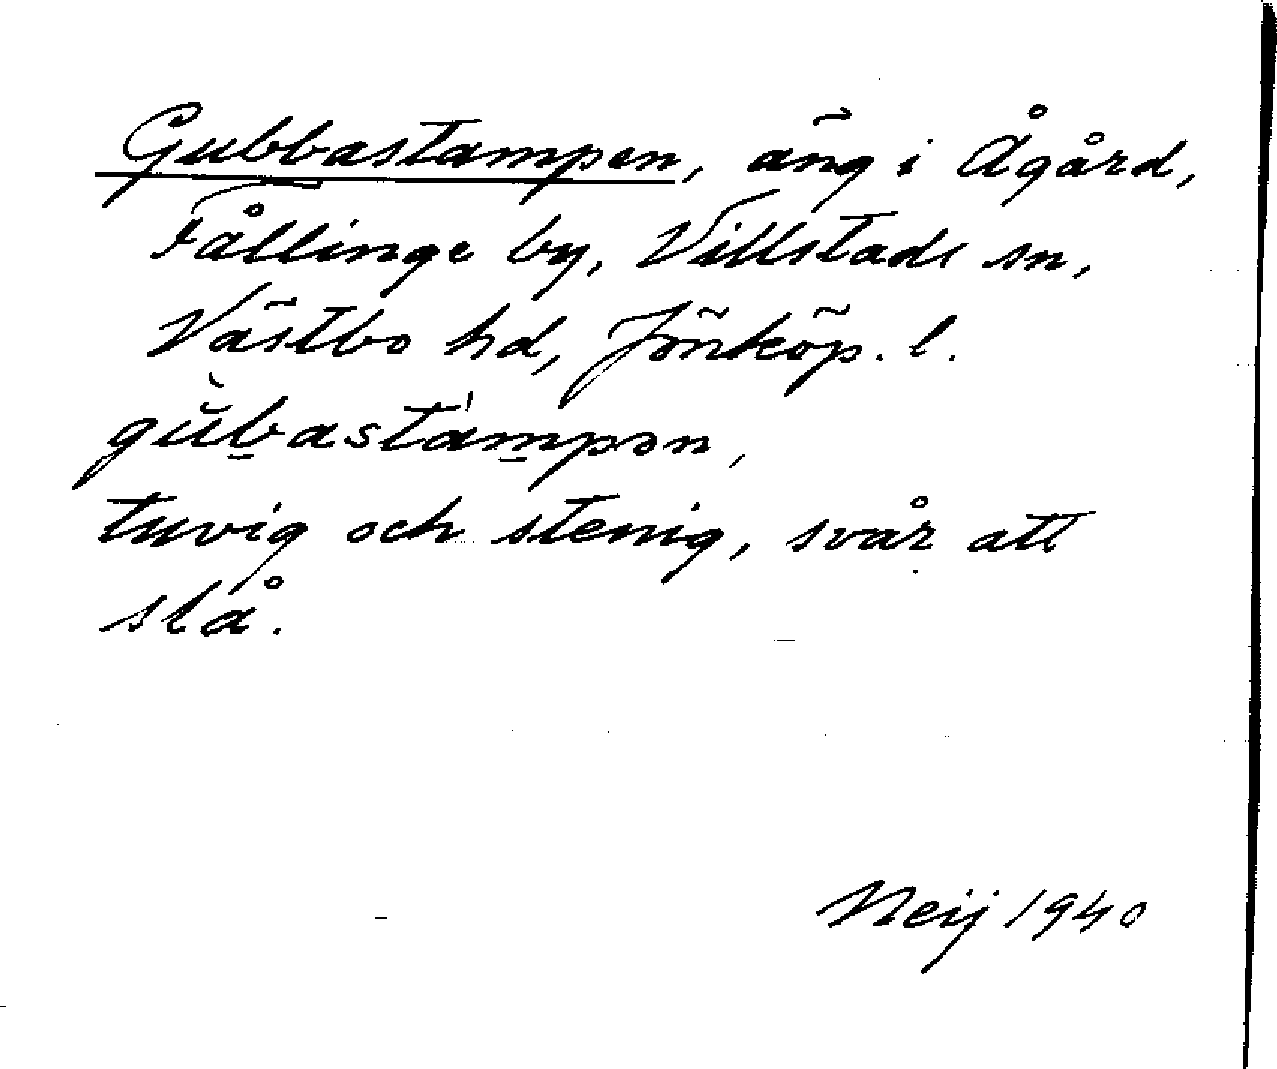 Gubbastampen, äng i Ågård,
Fållinge by, Villstads sn,
Västbo hd, Jönköp. l.
gŭ̀b̲astám̲pən,
tuvig och stenig, svår att
slå.
Neij 1940